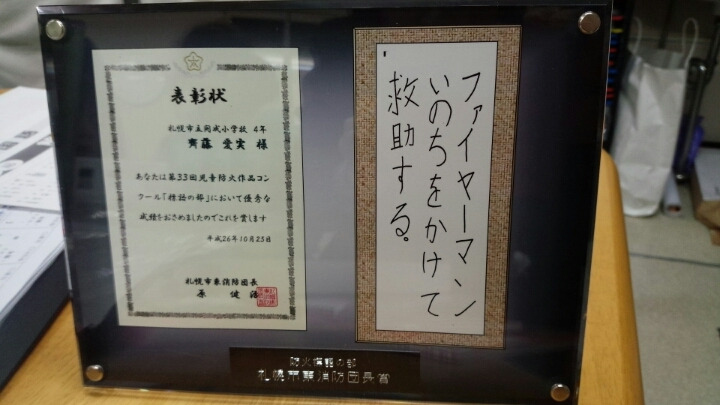 表彰状
札幌市立開成小学校 4年
齊藤 愛実 様
あなたは第33回児童防火作品コン
クール「標語の部」において優秀な
成績をおさめましたのでこれを賞します
平成26年10月25日
札幌市東消防団長
原 健
ファイヤーマン
いのちをかけて
救助する。
防火標語の部
札幌市東消防団長賞